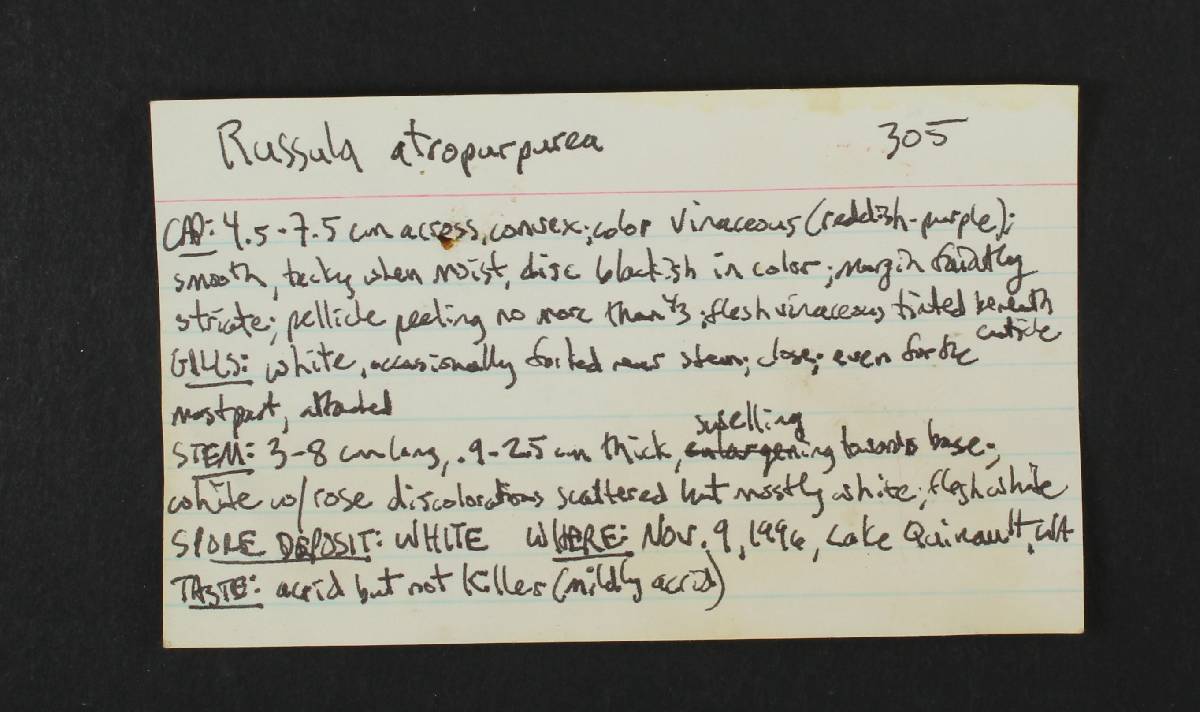 Russula atropurpurea 305
CAP: 4.5-7.5 cm across, convex; color vinaceous (reddish-purple);
smooth, tacky when moist, disc blackish in color; margin faintly
striate; pellicle peeling no more than 1/3; flesh vinaceous tinted beneath
cuticle
GILLS: white, occasionally forked near stem; close; even for the
most part, attached
swelling
STEM: 3-8 cm long, .9-2.5 cm thick, enlargening towards base;
white w/rose discolorations scattered but mostly white; flesh white
SPORE DEPOSIT: WHITE WHERE: Nov. 9, 1996, Lake Quinault, WA
TASTE: acrid but not killer (mildly acrid)